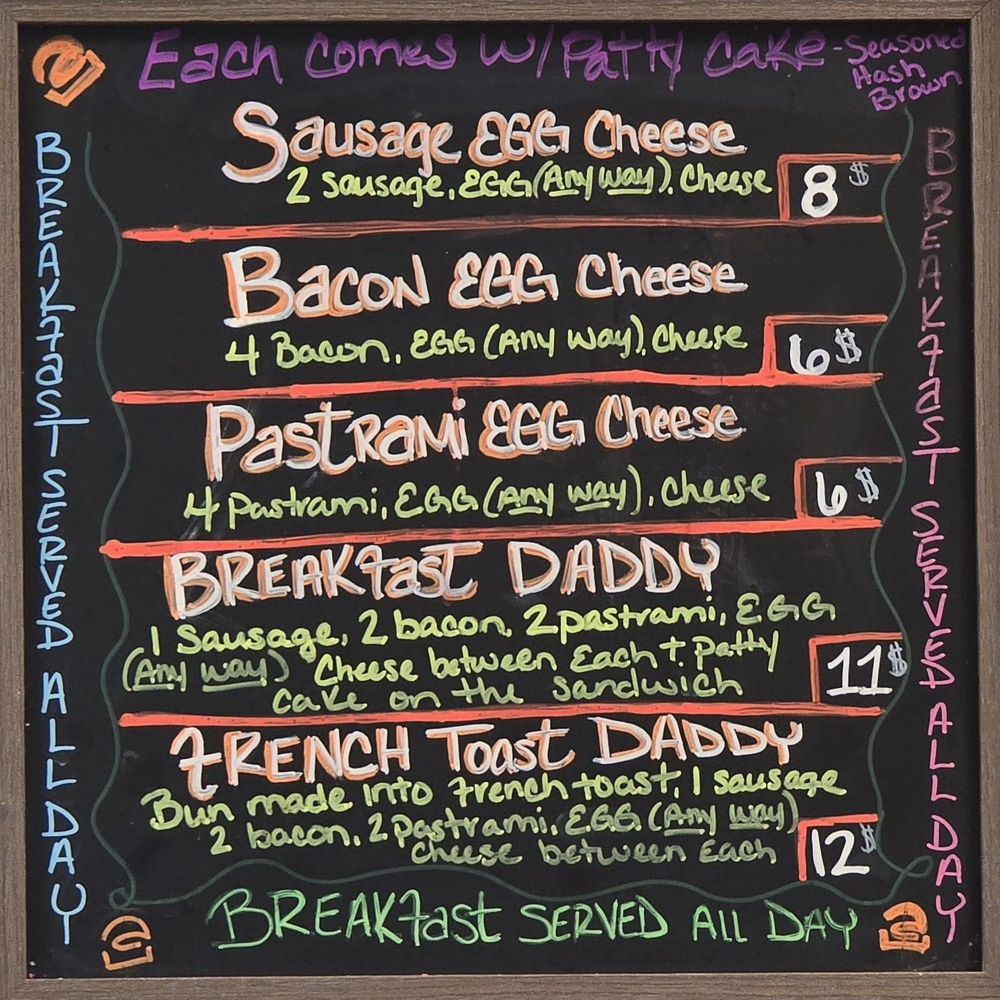 Each comes w/Patty Cake - Seasoned
Hash
Brown
Sausage EGG Cheese
2 sausage, EGG (Any way), Cheese
8$
Bacon EGG Cheese
4 Bacon, EGG (Any way), Cheese
6$
Pastrami EGG Cheese
4 Pastrami, EGG (Any way), Cheese
6$
BREAKfast DADDY
1 Sausage, 2 bacon, 2 pastrami, EGG
(Any way) Cheese between Each + Patty
cake on the sandwich
11$
fRENCH Toast DADDY
Bun made into french toast, 1 sausage
2 bacon, 2 Pastrami, EGG (Any way)
cheese between Each
12$
BREAKfast SERVED ALL DAY
BREAKfasT SERVED ALL DAY
BREAKfasT SERVED ALL DAY